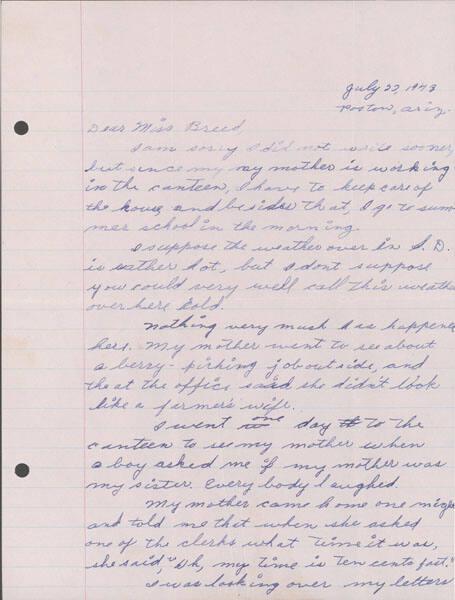 July 22, 1943
Poston, Ariz.
Dear Miss Breed,
I am sorry I did not write sooner,
but since my my mother is working
in the canteen, I have to keep care of
the house, and besides that, I go to sum-
mer school in the morning.
I suppose the weather over in S. D.
is rather hot, but I dont suppose
you could very well call this weathe
over here cold.
Nothing very much has happene
here. My mother went to see about
a berry-picking job outside, and
the at the office said she didn't look
like a farmer's wife.
I went one day to the
canteen to see my mother when
a boy asked me if my mother was
my sister. Every body laughed.
My mother came home one nigh
and told me that when she asked
one of the clerks what time it was,
she said, "Oh, my time is ten cents fast."
I was looking over my letters